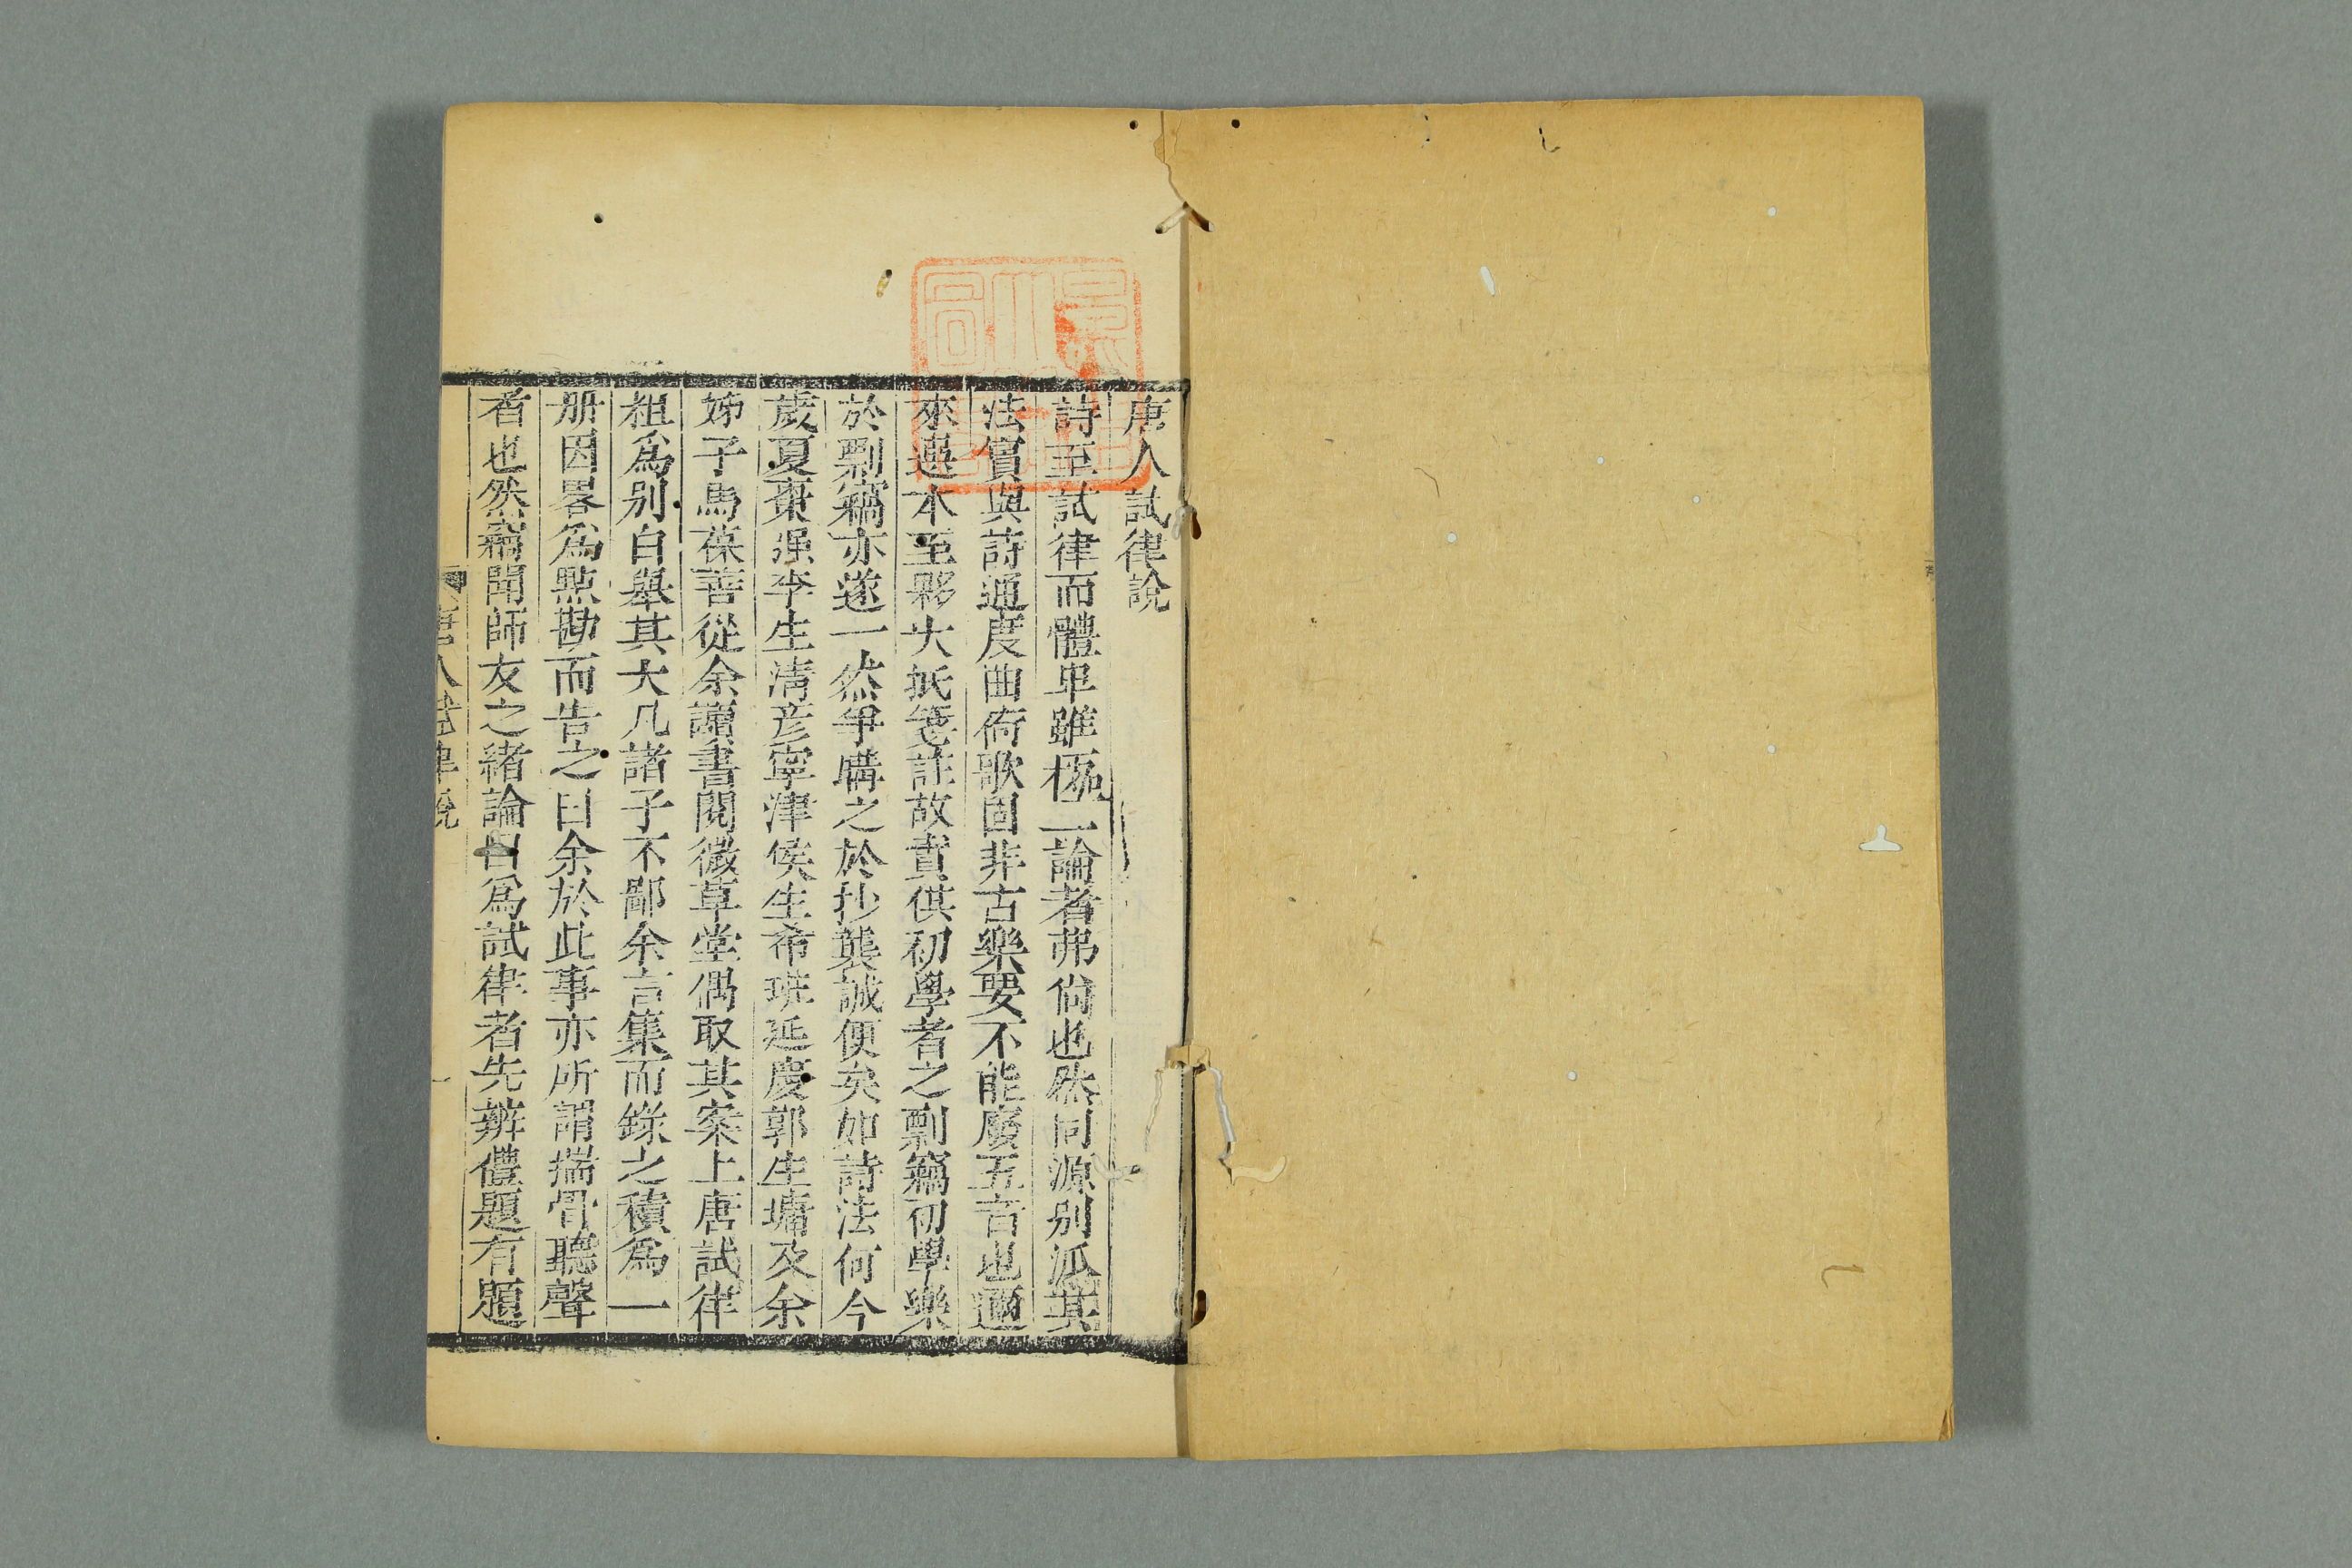 唐人試律說
詩至試律而體卑雖極工論者弗尙也然同源別派其
法實與詩通度曲倚歌固非古樂要不能廢五言也邇
來選本至夥大抵箋註故實供初學者之剽竊初學樂
於剽竊亦遂一然爭購之於抄襲誠便矣如詩法何今
歲夏棗强李生清彥寧津侯生希班延慶郭生墉及余
姊子馬葆善從余讀書閱微草堂偶取其案上唐試律
粗爲別白舉其大凡諸子不鄙余言集而錄之積爲一
册因畧爲點勘而告之曰余於此事亦所謂揣骨聽聲
者也然竊聞師友之緒論曰爲試律者先辨體題有題
唐人試律說
一